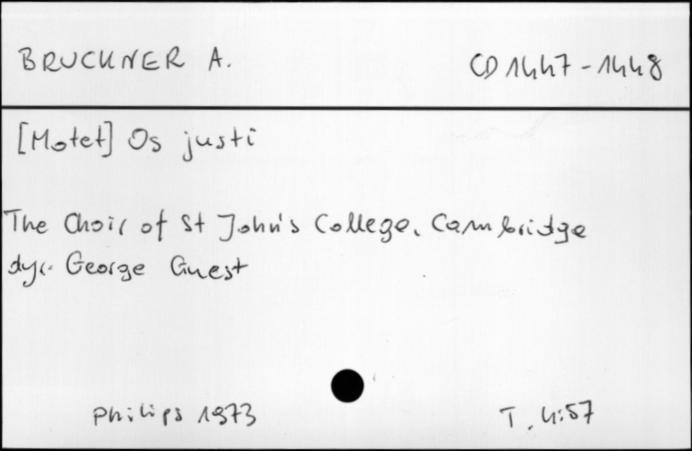 BRUCKNER A. CD 1447-1448
[Motet] Os justi
The Choir of St John's College, Cambridge
dyr. George Guest
Philips 1973 T. 4:57